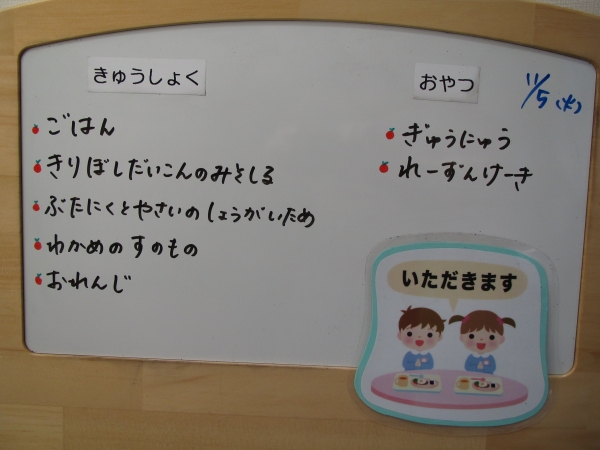 きゅうしょく
ごはん
きりぼしだいこんのみそしる
ぶたにくとやさいのしょうがいため
わかめのすのもの
おれんじ
おやつ
11/5(水)
ぎゅうにゅう
れーずんけーき
いただきます